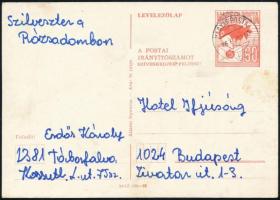 Szilveszter a
Rózsadombon
LEVELEZŐLAP
A POSTAI
IRÁNYÍTÓSZÁMOT
SZÍVESKEDJÉK FELTÜNTETNI
50
Hotel Ifjúság
Feladó:
Erdős Károly
2381 Táborfalva
Kossuth L. ut. 75sz.
1024 Budapest
Zivatar ut. 1-3.